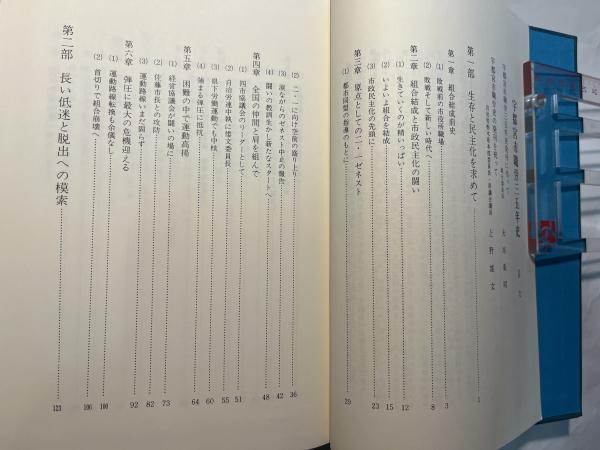 宇都宮市職労三五年史
目次
上野雄文
第一部 生存と民主化を求めて 1
第一章 組合結成前史 3
(1) 敗戦前の市役所職場 3
(2) 敗戦そして新しい時代へ 8
第二章 組合結成と市政民主化の闘い 12
(1) 生きていくのが精いっぱい 12
(2) いよいよ組合を結成 15
(3) 市政民主化の先頭に 23
第三章 原点としての二・一ゼネスト 29
(1) 都市同盟の指導のもとに 29
(2) 二・一に向け空前の盛り上り 36
(3) 涙ながらのゼネスト中止の報告 42
(4) 闘いの教訓生かし新たなスタートへ 48
第四章 全国の仲間と肩を組んで 51
(1) 四市協議会のリーダーとして 51
(2) 自治労連中執に倭文委員長 55
(3) 県下労働運動でも中核 60
(4) 強まる弾圧に抵抗 64
第五章 困難の中で運動高揚 73
(1) 経営協議会が闘いの場に 73
(2) 佐藤市長との攻防 82
(3) 運動路線いまだ固らず 92
第六章 弾圧に最大の危機迎える 100
(1) 運動路線転換も余儀なし 100
(2) 首切りで組合崩壊へ 106
第二部 長い低迷と脱出への模索 123